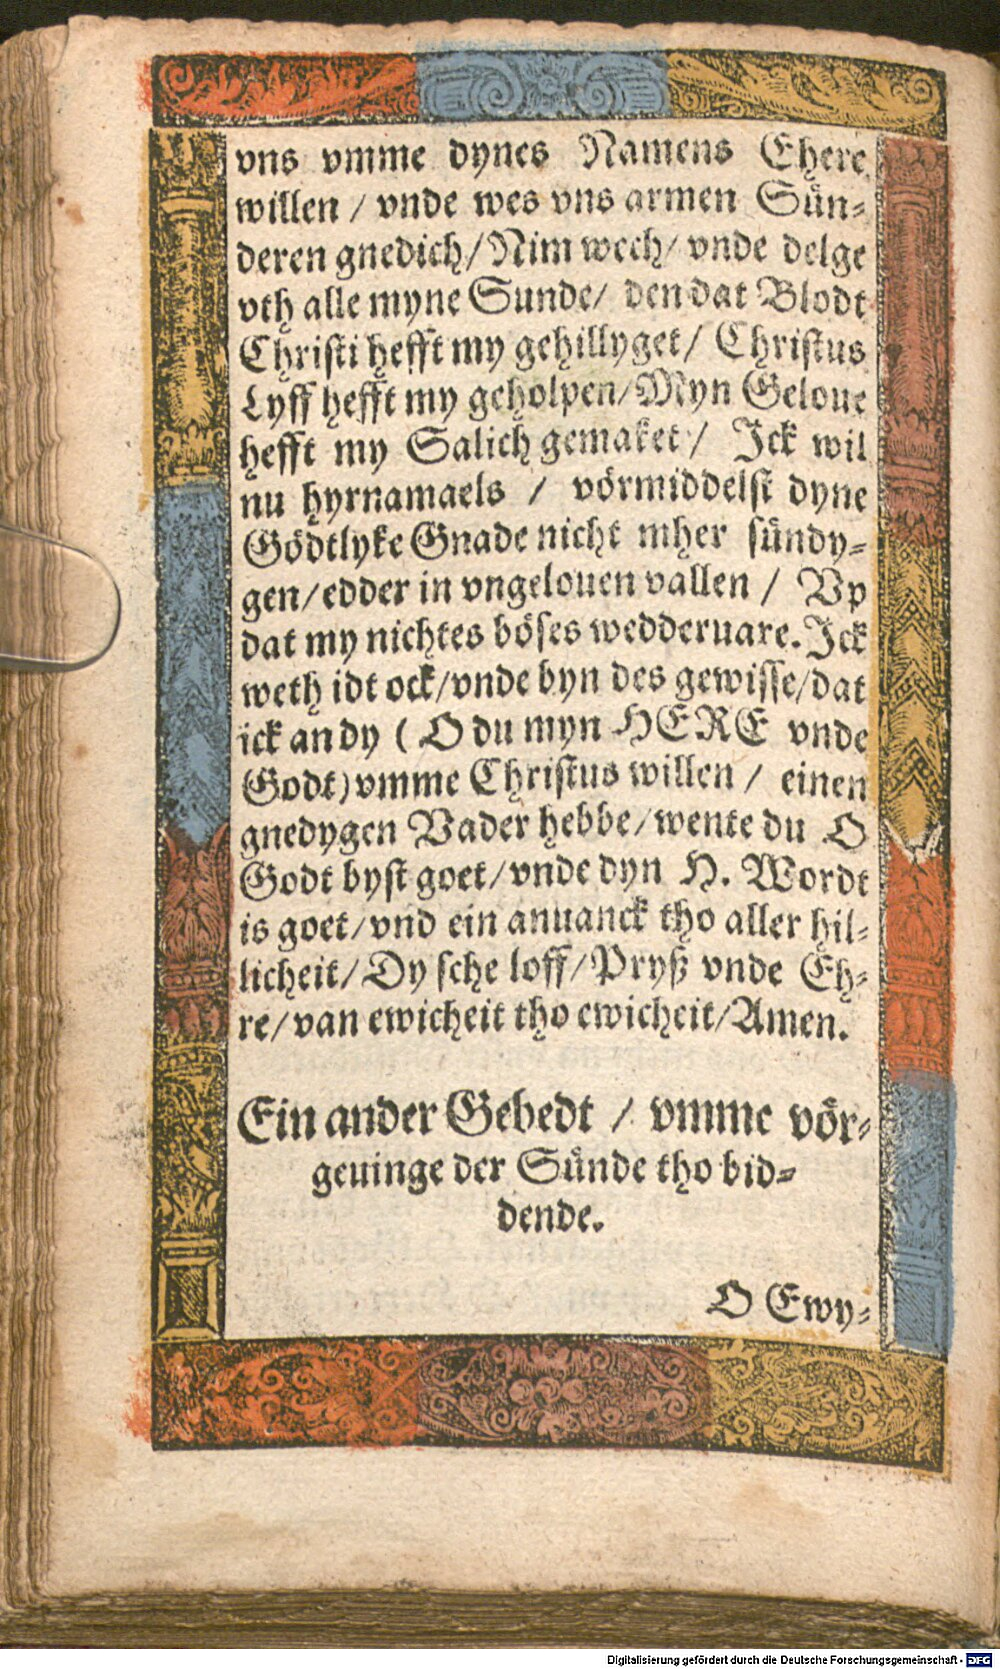 vns vmme dynes Namens Ehere
willen / vnde wes vns armen Sün⸗
deren gnedich/Nim wech/ vnde delge
vth alle myne Sunde/ den dat Blodt
Christi hefft my gehillyget/ Christus
Lyff hefft my geholpen/Myn Geloue
hefft my Salich gemaket/ Ick wil
nu hyrnamaels / vörmiddelst dyne
Gödtlyke Gnade nicht mher sündy⸗
gen/edder in vngelouen vallen / Vp
dat my nichtes böses wedderuare. Ick
weth idt ock/vnde byn des gewisse/dat
ick an dy ( O du myn HERE vnde
Godt) vmme Christus willen / einen
gnedygen Vader hebbe/wente du O
Godt byst goet/vnde dyn H. Wordt
is goet/vnd ein anuanck tho aller hil⸗
licheit/Dy sche loff/Pryß vnde Eh⸗
re/van ewicheit tho ewicheit/Amen.
Ein ander Gebedt / vmme vör⸗
geuinge der Sünde tho bid⸗
dende.
O Ewy⸗
Digitalisierung gefördert durch die Deutsche Forschungsgemeinschaft - DFG